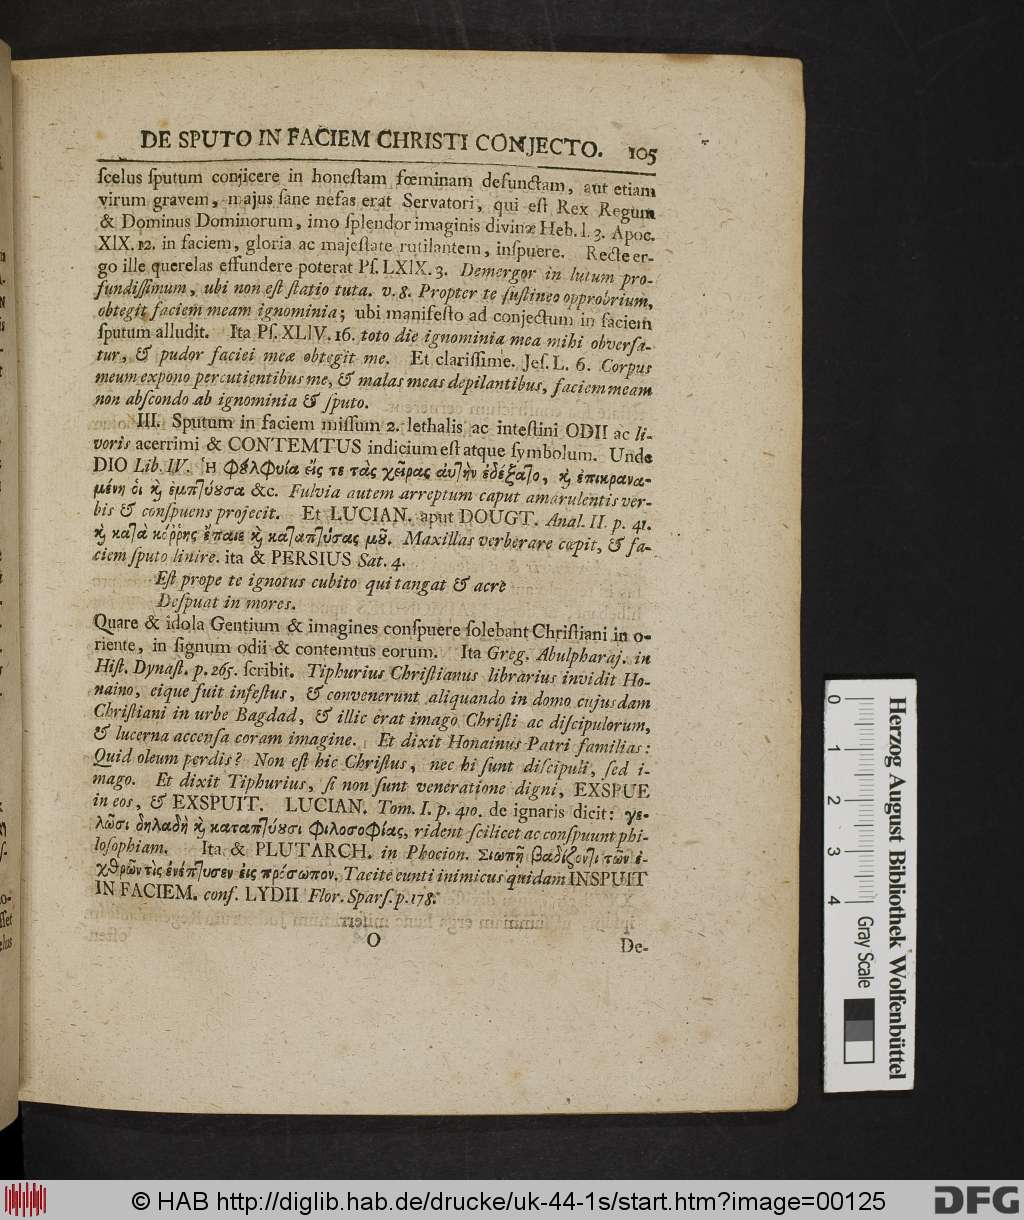 DE SPUTO IN FACIEM CHRISTI CONJECTO. 105
ſcelus ſputum conjicere in honeſtam fœminam defunctam, aut etiam
virum gravem, majus ſane nefas erat Servatori, qui eſt Rex Regum
& Dominus Dominorum, imo ſplendor imaginis divinæ Heb. I. 3. Apoc.
XIX. 12. in faciem, gloria ac majeſtate rutilantem, inſpuere. Recte er-
go ille querelas effundere poterat Pſ. LXIX. 3. Demergor in lutum pro-
fundiſſimum, ubi non eſt ſtatio tuta. v. 8. Propter te ſuſtineo opprobrium,
obtegit faciem meam ignominia; ubi manifeſto ad conjectum in faciem
ſputum alludit. Ita Pſ. XLIV. 16. toto die ignominia mea mihi obverſa-
tur, & pudor faciei meæ obtegit me. Et clariſſime. Jeſ. L. 6. Corpus
meum expono percutientibus me, & malas meas depilantibus, faciem meam
non abſcondo ab ignominia & ſputo.
III. Sputum in faciem miſſum 2. lethalis ac inteſtini ODII ac li-
voris acerrimi & CONTEMTUS indicium eſt atque ſymbolum. Unde
DIO Lib. IV. Ἡ Φȣλϐυία εἴς τε τὰς χεῖρας ἀυτὴν ἐδέξατο, ϗ ἐπικρανα-
μένη ὁι ϗ ἐμπτύȣσα &c. Fulvia autem arreptum caput amarulentis ver-
bis & conſpuens projecit. Et LUCIAN. aput DOUGT. Anal. II. p. 41.
ϗ κατὰ κόῤῥης ἔπαιε ϗ καταπτύσας μȣ. Maxillas verberare cœpit, & fa-
ciem ſputo linire. ita & PERSIUS Sat. 4.
Eſt prope te ignotus cubito qui tangat & acre
Deſpuat in mores.
Quare & idola Gentium & imagines conſpuere ſolebant Chriſtiani in o-
riente, in ſignum odii & contemtus eorum. Ita Greg. Abulpharaj. in
Hiſt. Dynaſt. p. 265. ſcribit. Tiphurius Chriſtianus librarius invidit Ho-
naino, eique fuit infeſtus, & convenerunt aliquando in domo cujusdam
Chriſtiani in urbe Bagdad, & illic erat imago Chriſti ac diſcipulorum,
& lucerna accenſa coram imagine. Et dixit Honainus Patri familias:
Quid oleum perdis? Non eſt hic Chriſtus, nec hi ſunt diſcipuli, ſed i-
mago. Et dixit Tiphurius, ſi non ſunt veneratione digni, EXSPUE
in eos, & EXSPUIT. LUCIAN. Tom. I. p. 410. de ignaris dicit: γε-
λῶσι δηλαδὴ ϗ καταπτύȣσι Φιλοσοφίας, rident ſcilicet ac conſpuunt phi-
loſophiam. Ita & PLUTARCH. in Phocion. Σιωπῆ βαδίζοντι τῶν ἐ-
χθρῶν τὶς ἐνέπτυσεν ἐις πρόσωπον. Tacite eunti inimicus quidam INSPUIT
IN FACIEM. conf. LYDII Flor. Sparſ. p. 178.
O
De-
Herzog August Bibliothek Wolfenbüttel
0 1 2 3 4 Gray Scale
© HAB http://diglib.hab.de/drucke/uk-44-1s/start.htm?image=00125
DFG